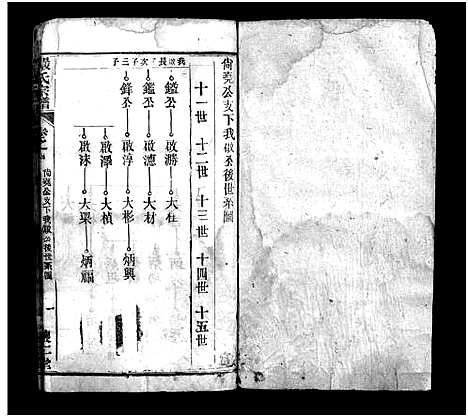 尙堯公支下我啟公後世系圖
十一世 十二世 十三世 十四世 十五世
我啟長子次子三子
鎰公 啟勝 大在
鑑公 啟德 大材
鋒公 啟淳 大彬 炳興
啟澤 大楨
啟沫 大梁 炳福
嚴氏宗譜 卷之
尙堯公支下我啟公後世系圖 一